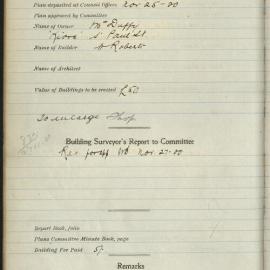 Plan deposited at Council Offices Nov 25-20
Plan approved by Committee
Name of Owner Mrs Duffy
"Kiora" St Paul St
Name of Builder A Roberts
Name of Architect
Value of Buildings to be erected £50
To enlarge Shop
Building Surveyor's Report to Committee
Rec for app Nov 27-20
Report Book, folio
Plans Committee Minute Book, page
Building Fee Paid 5/-
Remarks